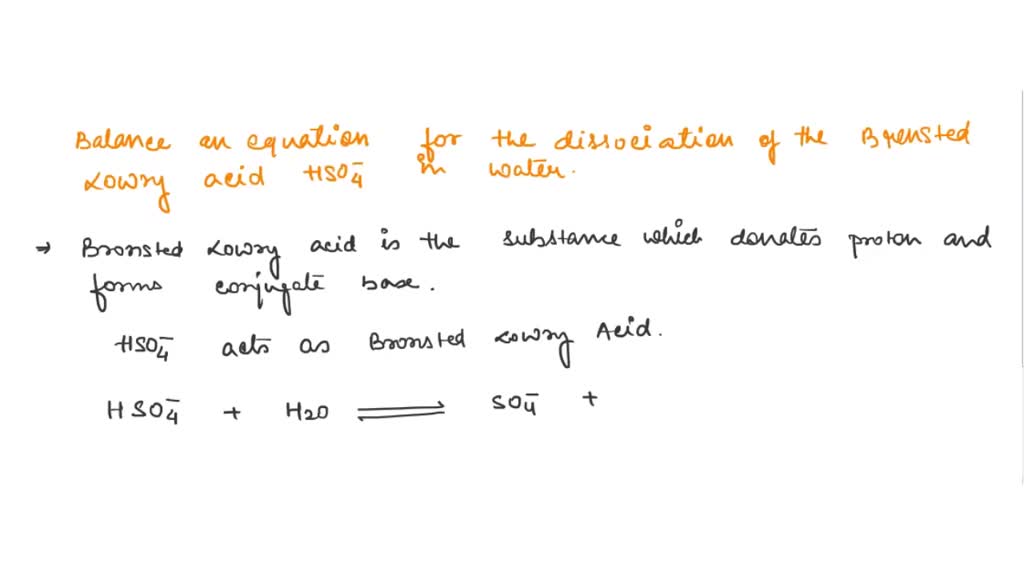 Balance an equation for the dissociation of the Brensted
Lowry acid HSO₄⁻ in water.
→ Bronsted Lowry acid is the substance which donates proton and
forms conjugate base.
HSO₄⁻ acts as Bronsted Lowry Acid.
HSO₄⁻ + H₂O ⇌ SO₄⁻ +